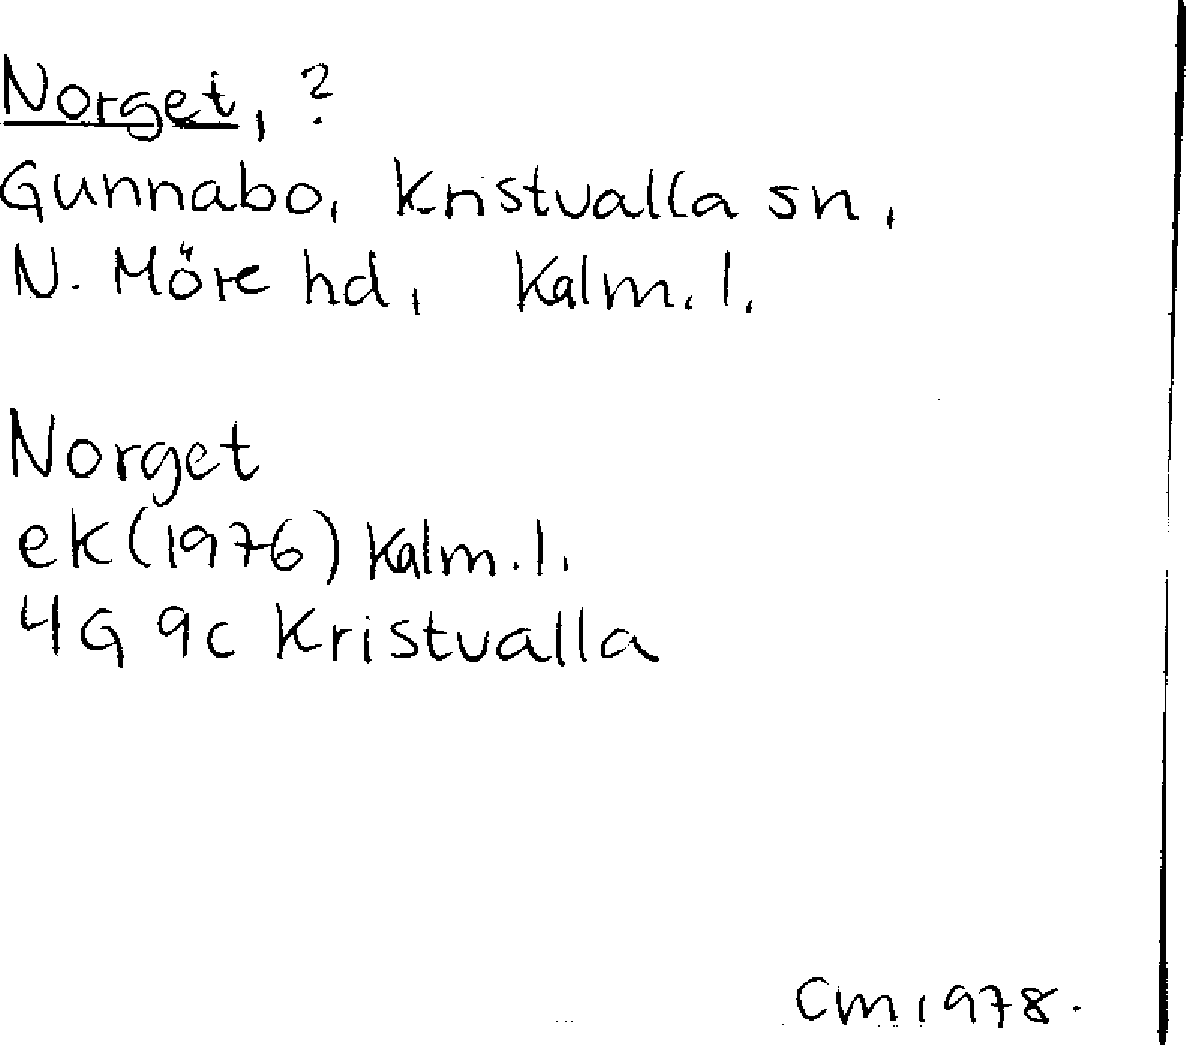 Norget, ?
Gunnabo, Kristvalla sn,
N. Möre hd, Kalm. l.
Norget
ek (1976) Kalm. l.
4G 9c Kristvalla
CM 1978.